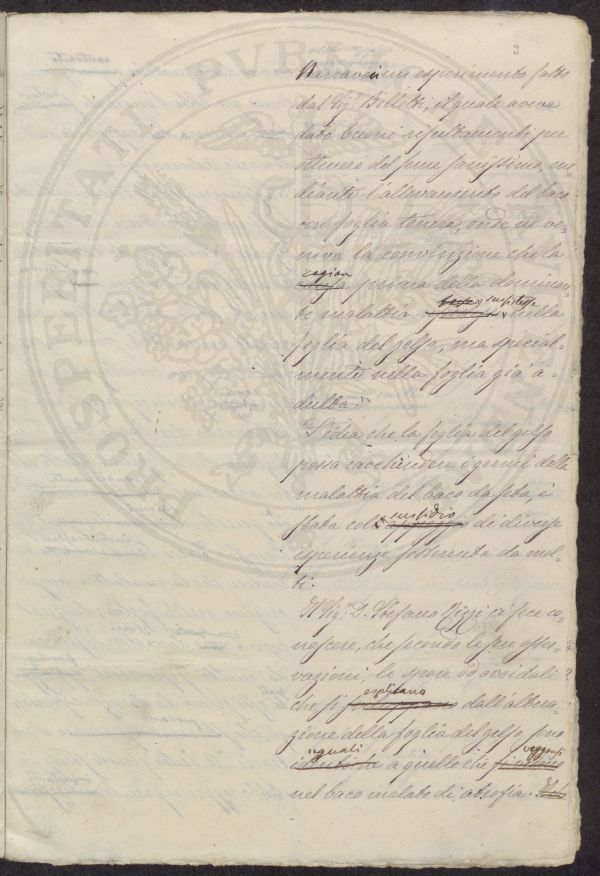 3
Narravasi un esperimento fatto
dal Sig.r Bellotti, il quale aveva
dato buoni risultamenti per
ottenere del seme sanissimo, me-
diante l'allevamento del baco
con foglia tenera, onde ne ve-
niva la convinzione che la
cagion
prima della dominan-
te malattia nella
sussistesse
foglia del gelso, ma special-
mente nella foglia già a-
dulta.
L'idea, che la foglia del gelso
possa racchiudere i germi della
malattia del baco da seta, è
stata col di diverse
sussidio
esperienze sostenuta da mol-
ti.
Il Sig.r D. Stefano Rizzi ci fece co-
noscere, che secondo le sue osser-
vazioni, le spore od ovoidali
che si dall'altera-
esplicano
zione della foglia del gelso, sono
uguali
identiche a quelle che
veggonsi
nel baco malato di atrofia.
PROSPERITATI PVBLI